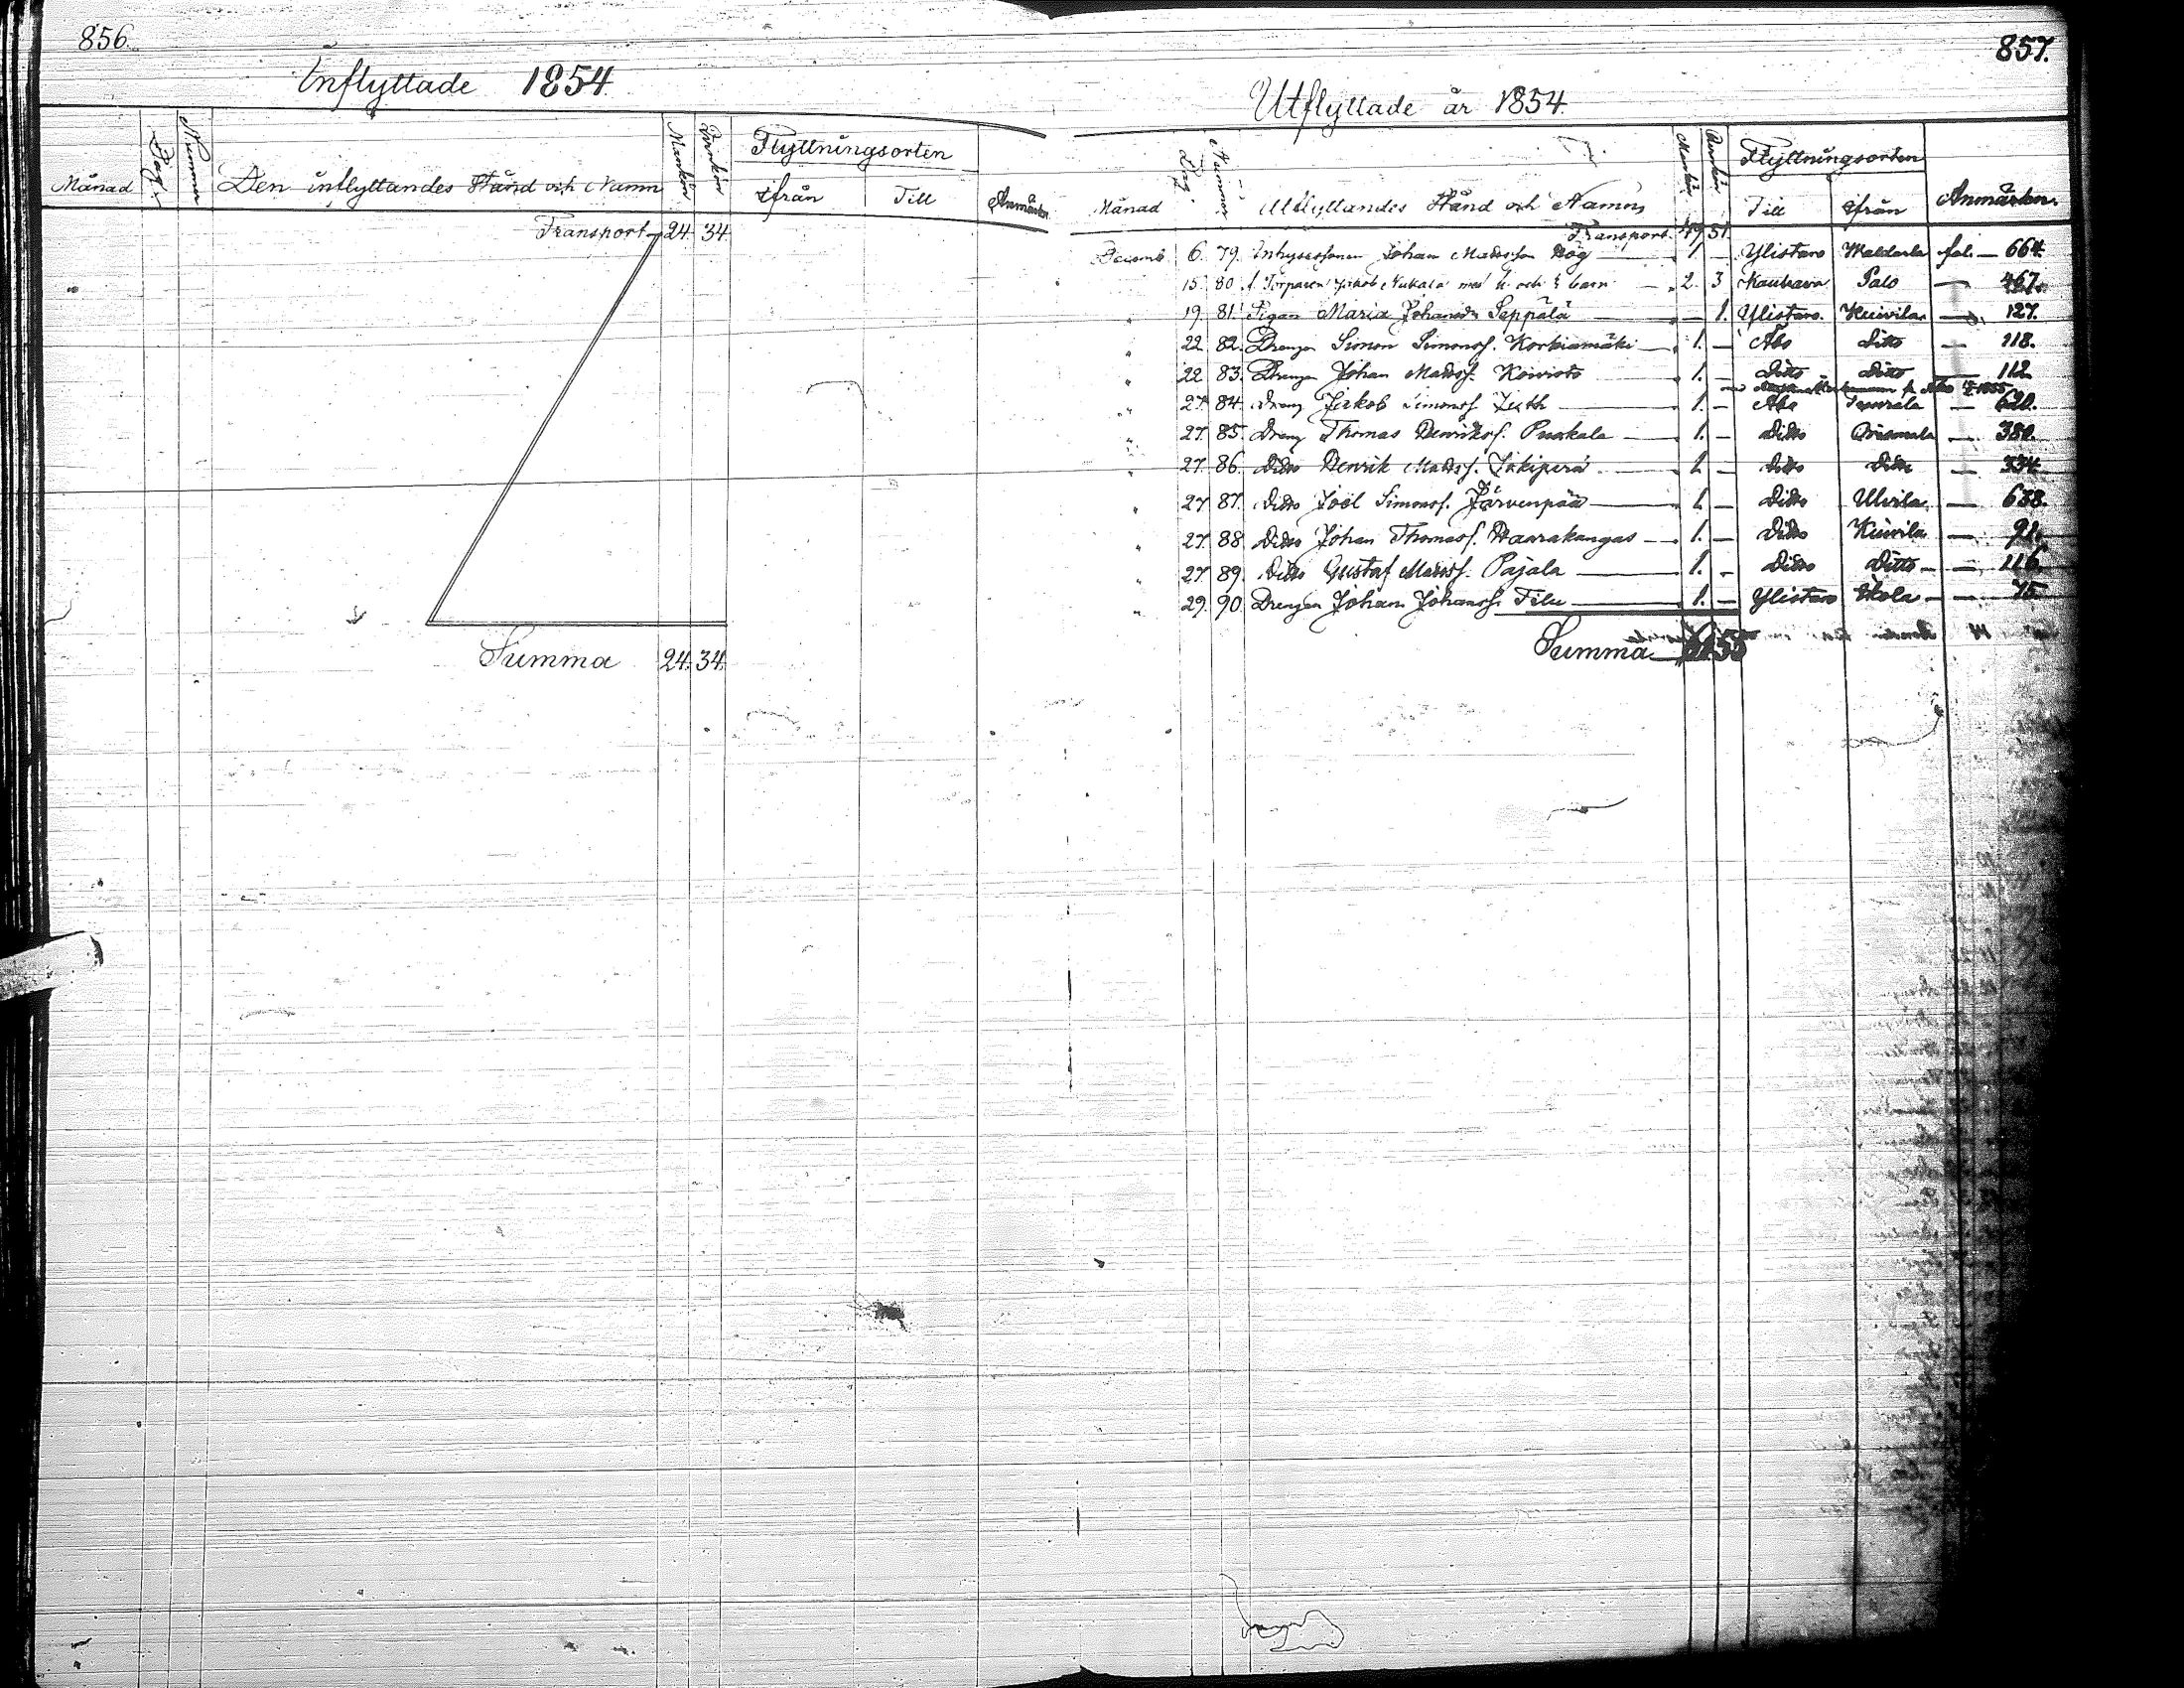 856.
Inflyttade 1854.
Månad Dag Nummer Den inflyttandes Stånd och Namn Mankön Qvinkön Flyttningsorten ifrån Till Anmärkn.
Transport 24. 34.
Summa 24. 34.
857.
Utflyttade år 1854.
Månad Dag Nummer Utflyttandes Stånd och Namn Mankön Qvinkön Flyttningsorten Till ifrån Anmärkn.
Transport. 49 51.
Decemb. 6. 79. Inhysessonen Johan Mattsson Hög 1. — Ylistaro Waldarla fol. — 664.
" 15. 80. f. Torparen Jakob Nukala med h. och barn 2. 3 Kauhava Palo — 467.
" 19. 81. Pigan Maria Johansdr Seppälä — 1. Ylistaro. Kuivila — 127.
" 22. 82. Drengen Simon Simonss. Korkiamäki 1. — Åbo ditto — 118.
" 22. 83. Drengen Johan Mattss. Koivisto 1. — Ditto Ditto — 112.
" 27. 84. Dreng Jakob Simonss. 1. — Åbo — 620.
" 27. 85. Dreng Thomas Henrikss. Puskala 1. — Ditto Orismala — 380.
" 27. 86. Ditto Henrik Mattss. Jokiperä 1. — Ditto Ditto — 334.
" 27. 87. Ditto Joël Simonss. Järvenpää 1. — Ditto Ulvila — 688.
" 27. 88. Ditto Johan Thomass. Haarakangas 1. — Ditto Kuivila — 91.
" 27. 89. Ditto Gustaf Mattss. Pajala 1. — Ditto Ditto — 116.
" 29. 90. Drengen Johan Johanss. Tilu 1. — Ylistaro Ikola — 75.
Summa